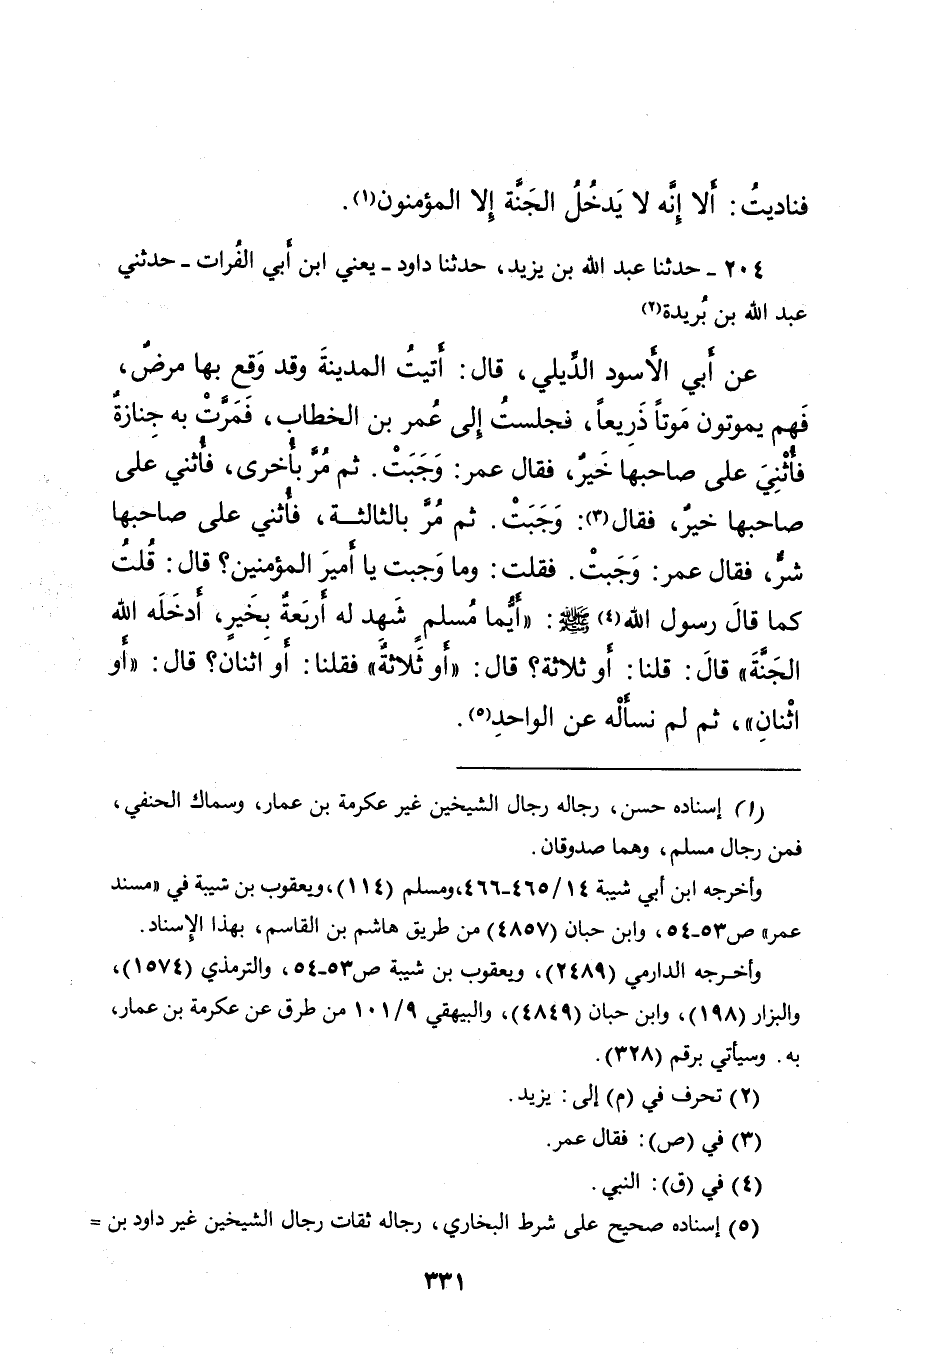 فناديتُ: أَلا إِنَّه لا يَدخُلُ الجَنَّة إِلا المؤمنون(١).
٢٠٤ ـ حدثنا عبد الله بن يزيد، حدثنا داود ـ يعني ابن أَبي الفُرات ـ حدثني
عبد الله بن بُريدة(٢)
عن أَبي الأَسود الدِّيلي، قال: أَتيتُ المدينةَ وقد وَقع بها مرضٌ،
فَهم يموتون مَوتاً ذَرِيعاً، فجلستُ إِلى عُمر بن الخطاب، فَمَرَّتْ به جِنازةٌ
فأُثْنِيَ على صاحبها خَيرٌ، فقال عمر: وَجَبَتْ. ثم مُرَّ بأُخرى، فأُثني على
صاحبها خيرٌ، فقال(٣): وَجَبَتْ. ثم مُرَّ بالثالثـة، فأُثني على صاحبها
شرٌّ، فقال عمر: وَجَبتْ. فقلت: وما وَجبت يا أَميرَ المؤمنين؟ قال: قُلتُ
كما قالَ رسول الله(٤) ﷺ: «أَيُّما مُسلمٍ شَهد له أَربَعةٌ بِخَيرٍ، أَدخَلَه الله
الجَنَّةَ» قالَ: قلنا: أَو ثلاثة؟ قال: «أَو ثَلاثةٌ» فقلنا: أَو اثنان؟ قال: «أَو
اثْنانِ»، ثم لم نسأَلْه عن الواحدِ(٥).
(١) إسناده حسن، رجاله رجال الشيخين غير عكرمة بن عمار، وسماك الحنفي،
فمن رجال مسلم، وهما صدوقان.
وأخرجه ابن أبي شيبة ٤٦٥/١٤-٤٦٦،ومسلم (١١٤)،ويعقوب بن شيبة في «مسند
عمر» ص٥٣-٥٤، وابن حبان (٤٨٥٧) من طريق هاشم بن القاسم، بهذا الإِسناد.
وأخـرجه الدارمي (٢٤٨٩)، ويعقوب بن شيبة ص٥٣-٥٤، والترمذي (١٥٧٤)،
والبزار (١٩٨)، وابن حبان (٤٨٤٩)، والبيهقي ١٠١/٩ من طرق عن عكرمة بن عمار،
به. وسيأتي برقم (٣٢٨).
(٢) تحرف في (م) إلى: يزيد.
(٣) في (ص): فقال عمر.
(٤) في (ق): النبي.
(٥) إسناده صحيح على شرط البخاري، رجاله ثقات رجال الشيخين غير داود بن =
٣٣١